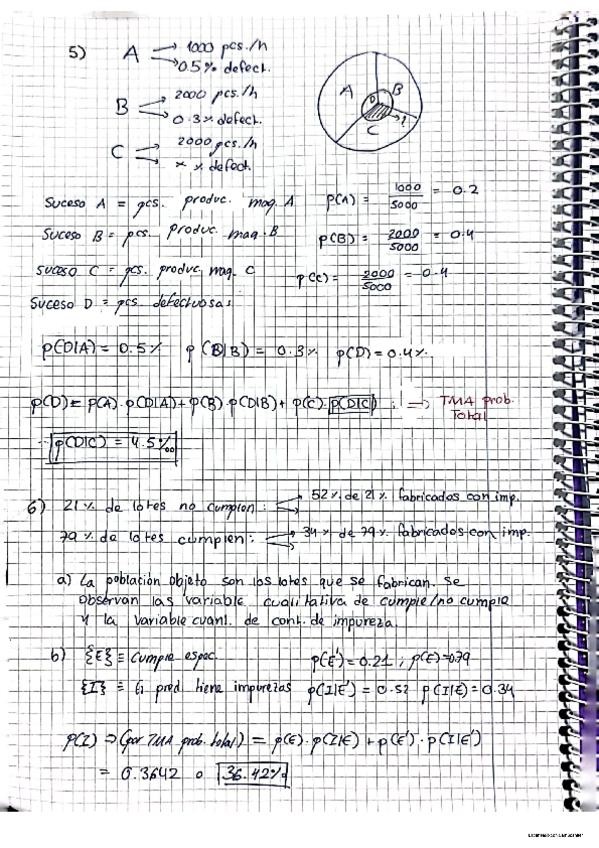 5) A → 1000 pcs./h
→ 0.5% defect.
B → 2000 pcs./h
→ 0.3% defect.
C → 2000 pcs./h
→ x % defect.
A B D C
Suceso A = pcs. produc. maq. A p(A) = 1000/5000 = 0.2
Suceso B = pcs. produc. maq. B p(B) = 2000/5000 = 0.4
Suceso C = pcs. produc. maq. C p(C) = 2000/5000 = 0.4
Suceso D = pcs. defectuosas
p(D|A) = 0.5% p(B|B) = 0.3% p(D) = 0.4%
p(D) = p(A)·p(D|A) + p(B)·p(D|B) + p(C)·p(D|C) ; ⇒ TMA prob. Total
p(D|C) = 4.5‰
6) 21% de lotes no cumplen: → 52% de 21% fabricados con imp.
79% de lotes cumplen: → 34% de 79% fabricados con imp.
a) La población objeto son los lotes que se fabrican. Se
observan las variable cualitativa de cumple/no cumple
y la variable cuant. de cont. de impureza.
b) {E} ≡ Cumple espec. p(E') = 0.21 ; p(E) = 0.79
{I} ≡ El prod. tiene impurezas p(I|E') = 0.52 p(I|E) = 0.34
p(I) ⇒ (por TMA prob. total) = p(E)·p(I|E) + p(E')·p(I|E')
= 0.3642 o 36.42%